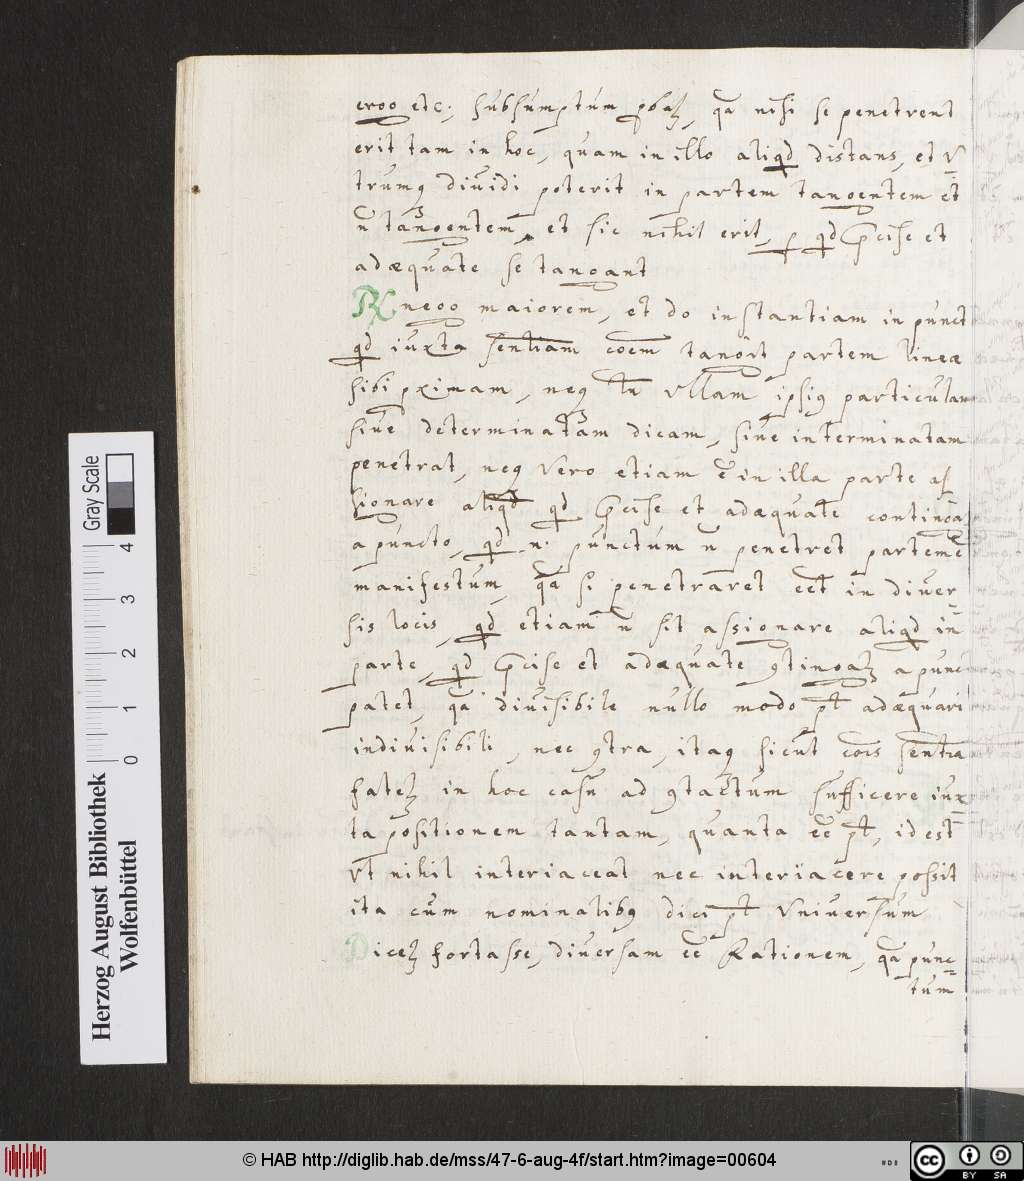 ergo etc: subsumptum pbatꝛ, qa nisi se penetrent
erit tam in hoc, quam in illo aliqd distans, et v
trumq diuidi poterit in partem tangentem et
n tangentem, et sic nihil erit, p qd Pcise et
adæquate se tangant
Rx nego maiorem, et do instantiam in punct
qd iuxta sentiam coem tangit partem lineæ
sibi pximam, neq tn vllam ipsiq particulam
siue determinatam dicam, siue interminatam
penetrat, neq vero etiam e in illa parte as
signare aliqd qd Pcise et adæquate
a puncto, qd n. punctum n penetret partem e
manifestum, qa si penetraret eet in diuer
sis locis, qd etiam n sit assignare aliqd in
parte, qd Pcise et adæquate a punc
patet, qa diuisibile nullo modo pt adæquari
indiuisibili, nec 9tra, itaq sicut cois sentia
fatetꝛ in hoc casu ad 9tactum sufficere iux
ta positionem tantam, quanta ee pt, id est
vt nihil interiaceat nec interiacere possit
ita cum nominalibq dici pt vniuersum
Dicetꝛ fortasse, diuersam ee Rationem, qa punc
tum
Gray Scale
0 1 2 3 4
Herzog August Bibliothek
Wolfenbüttel
© HAB http://diglib.hab.de/mss/47-6-aug-4f/start.htm?image=00604
cc BY SA